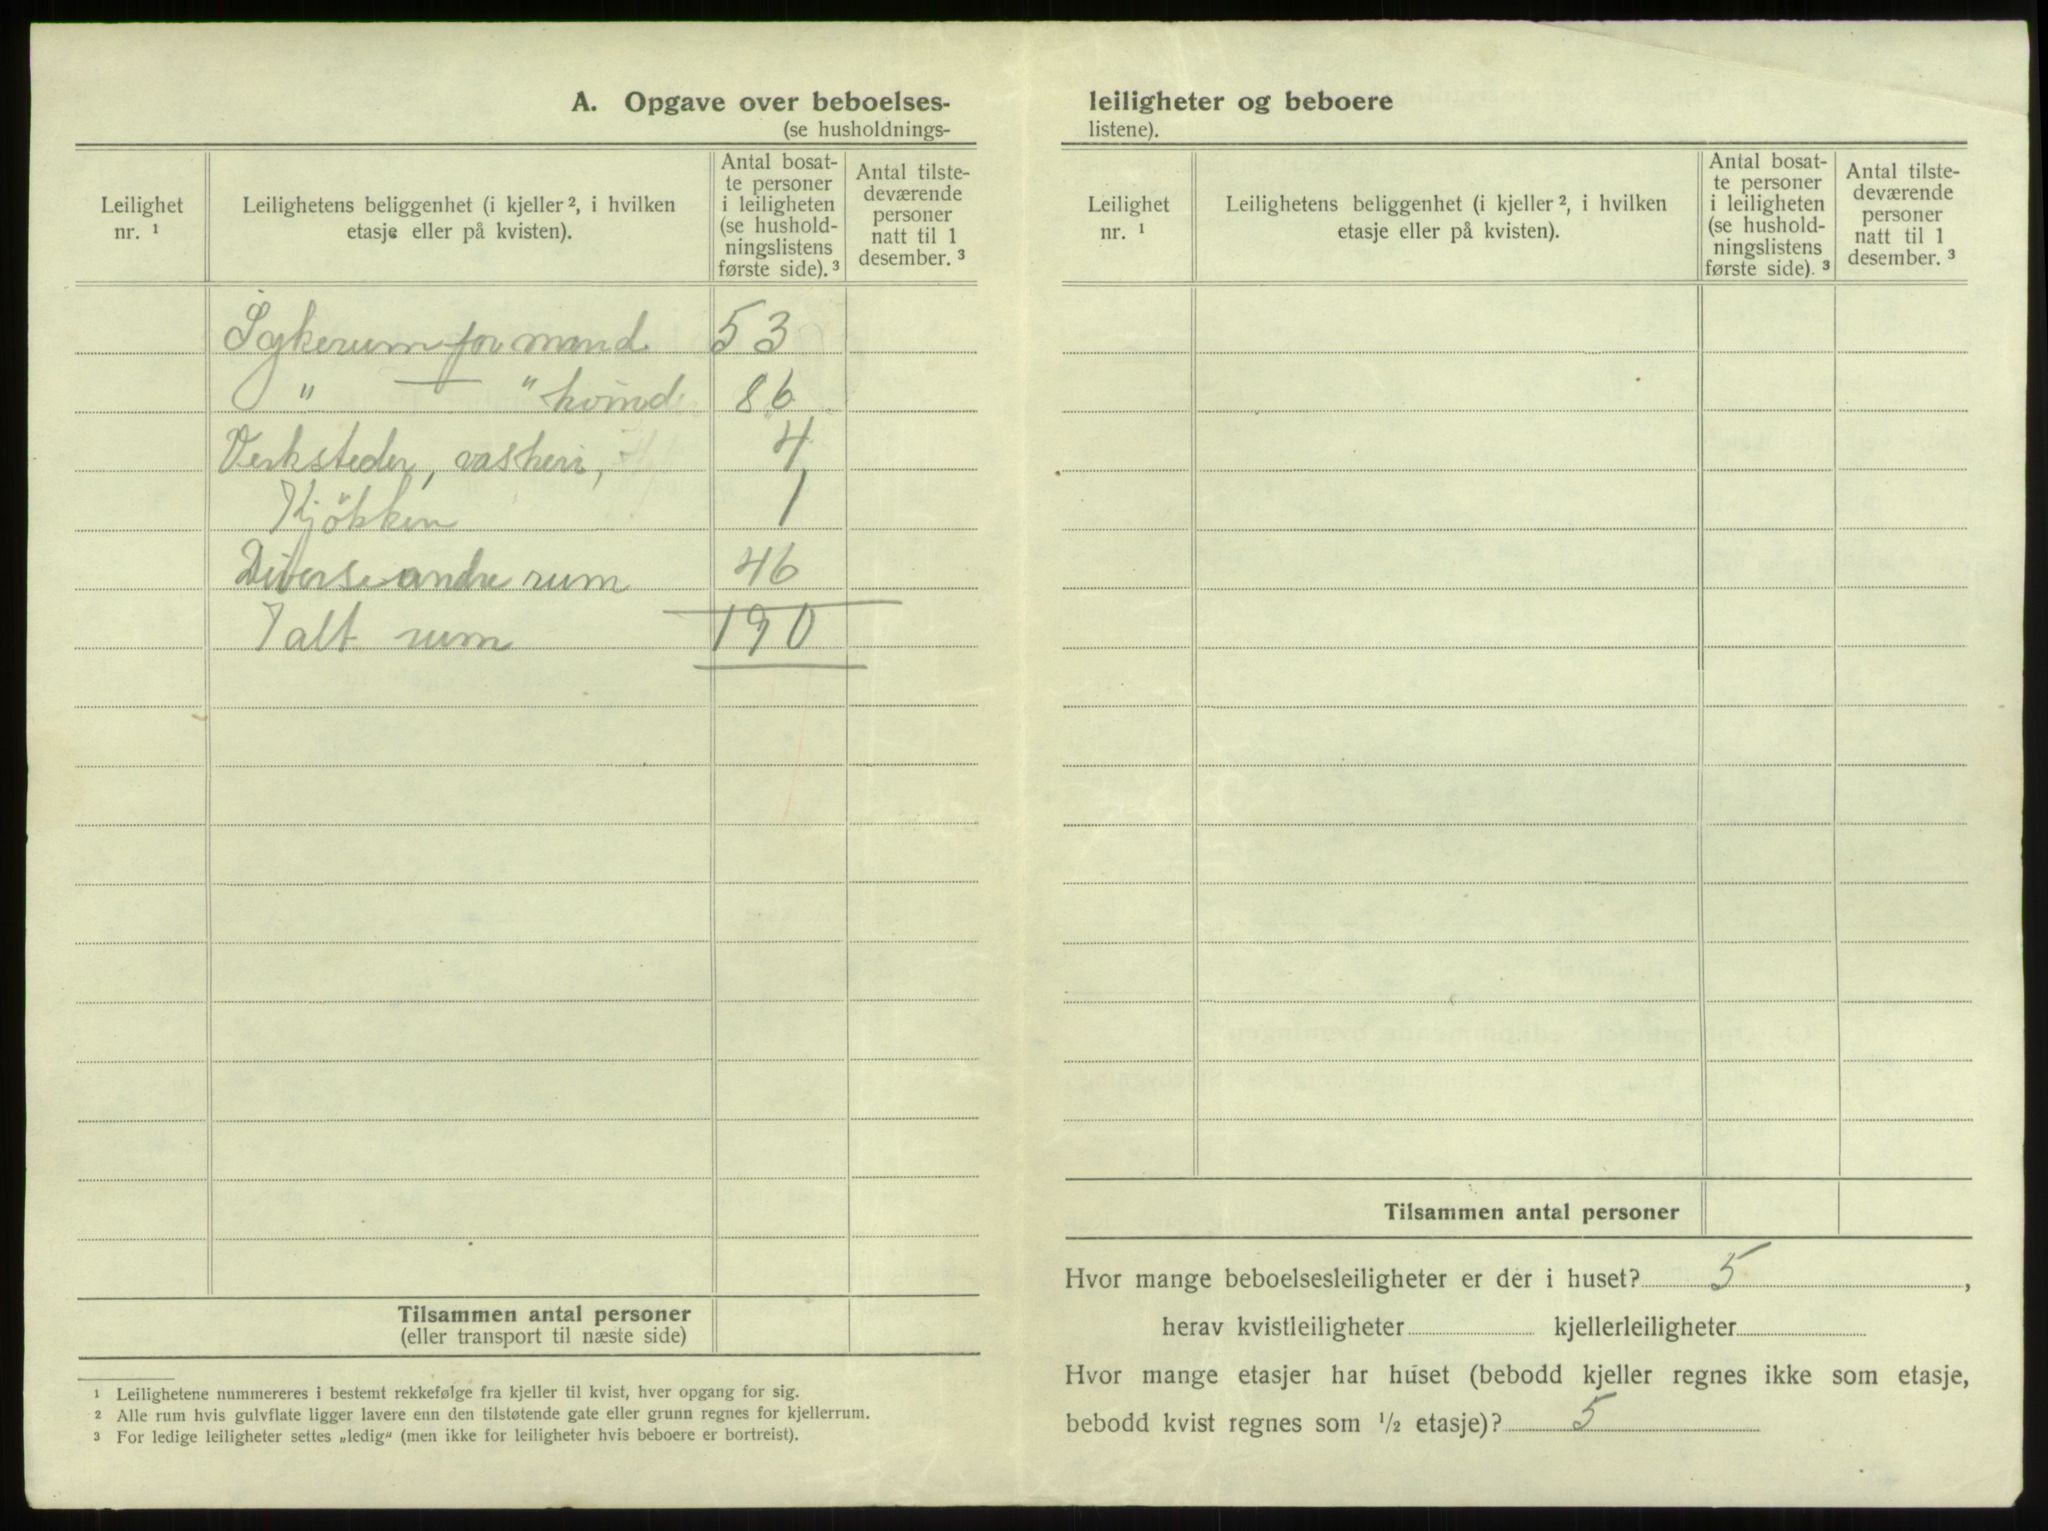 A. Opgave over beboelses-
(se husholdnings-
Leilighet
nr. ¹
Leilighetens beliggenhet (i kjeller ², i hvilken
etasje eller på kvisten).
Antal bosat-
te personer
i leiligheten
(se hushold-
ningslistens
første side). ³
Antal tilste-
deværende
personer
natt til 1
desember. ³
Sykerum for mænd 53
" — " kvind 86
Verksteder, vaskeri, 4
Kjökken 1
Diverse andre rum 46
I alt rum 190
Tilsammen antal personer
(eller transport til næste side)
¹ Leilighetene nummereres i bestemt rekkefølge fra kjeller til kvist, hver opgang for sig.
² Alle rum hvis gulvflate ligger lavere enn den tilstøtende gate eller grunn regnes for kjellerrum.
³ For ledige leiligheter settes „ledig“ (men ikke for leiligheter hvis beboere er bortreist).
leiligheter og beboere
listene).
Leilighet
nr. ¹
Leilighetens beliggenhet (i kjeller ², i hvilken
etasje eller på kvisten).
Antal bosat-
te personer
i leiligheten
(se hushold-
ningslistens
første side). ³
Antal tilste-
deværende
personer
natt til 1
desember. ³
Tilsammen antal personer
Hvor mange beboelsesleiligheter er der i huset? 5 ,
herav kvistleiligheter kjellerleiligheter
Hvor mange etasjer har huset (bebodd kjeller regnes ikke som etasje,
bebodd kvist regnes som ½ etasje)? 5